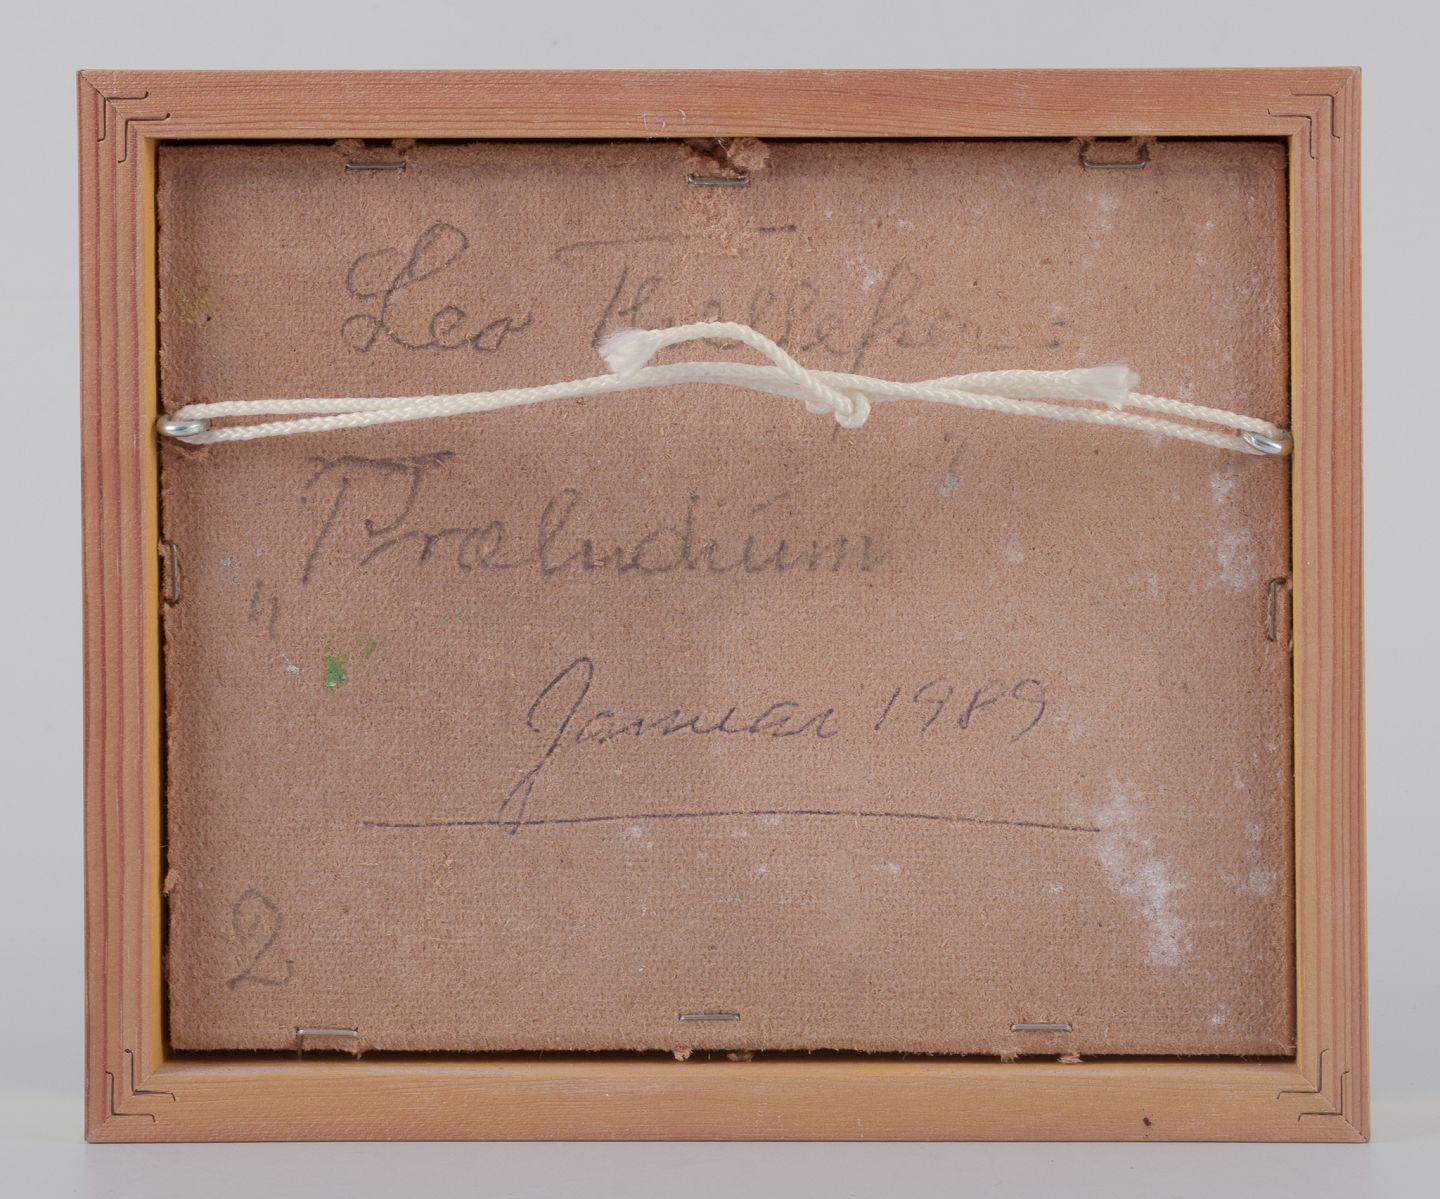 Leo
Præludium
"
Januar 1989
2